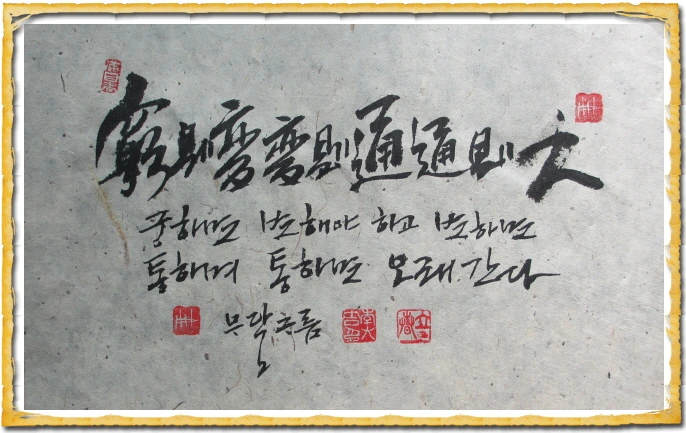 窮則變變則通通則久
궁하면 변해야 하고 변하면
통하며 통하면 오래 간다